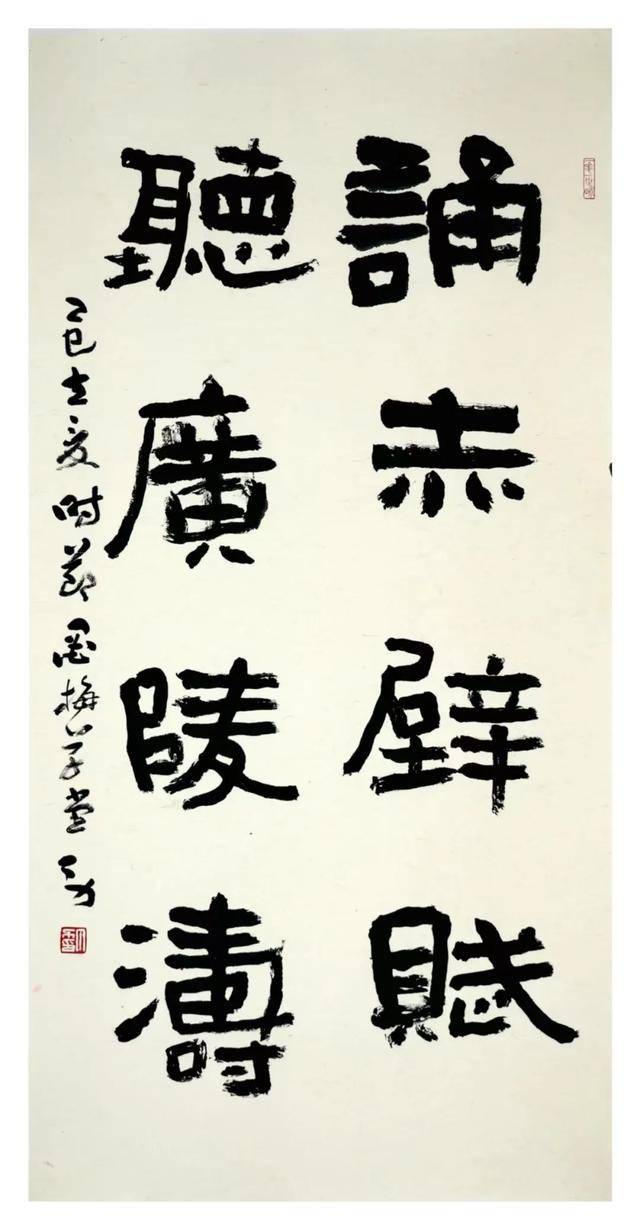 誦赤壁賦
聽廣陵濤
乙巳立夏时節梅草堂